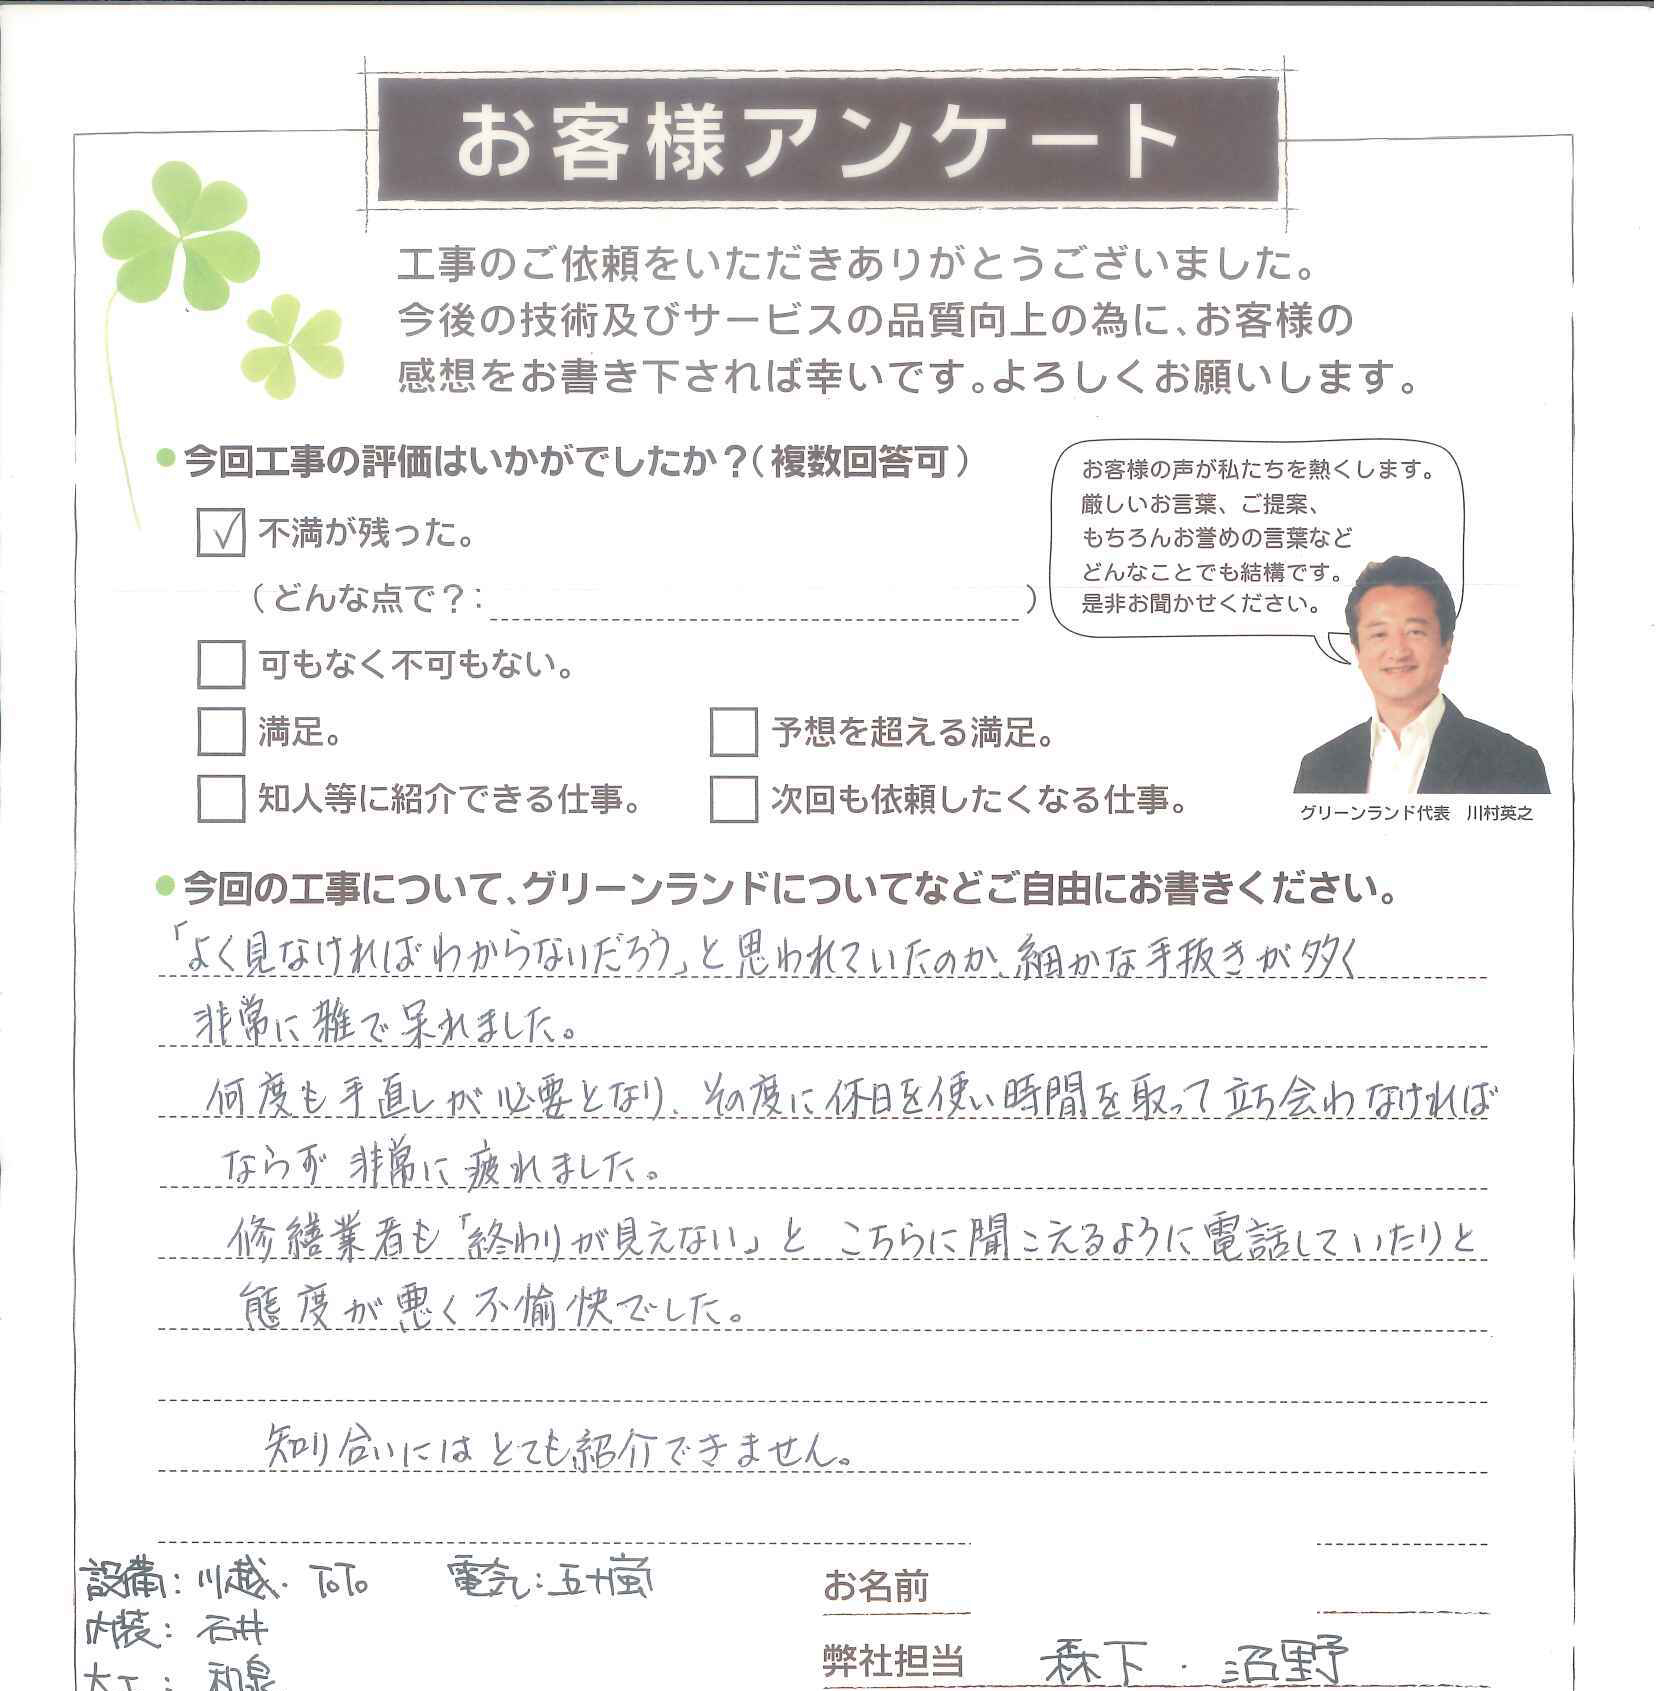 お客様アンケート
工事のご依頼をいただきありがとうございました。
今後の技術及びサービスの品質向上の為に、お客様の
感想をお書き下されば幸いです。よろしくお願いします。
今回工事の評価はいかがでしたか？（複数回答可）
不満が残った。
（どんな点で？：　）
可もなく不可もない。
満足。
予想を超える満足。
知人等に紹介できる仕事。
次回も依頼したくなる仕事。
お客様の声が私たちを熱くします。
厳しいお言葉、ご提案、
もちろんお誉めの言葉など
どんなことでも結構です。
是非お聞かせください。
グリーンランド代表　川村英之
今回の工事について、グリーンランドについてなどご自由にお書きください。
「よく見なければわからないだろう」と思われていたのか、細かな手抜きが多く
非常に雑で呆れました。
何度も手直しが必要となり、その度に休日を使い時間を取って立ち会わなければ
ならず非常に疲れました。
修繕業者も「終わりが見えない」と こちらに聞こえるように電話していたりと
態度が悪く不愉快でした。
知り合いにはとても紹介できません。
設備：川越・TOTO　電気：五十嵐
内装：石井
大工：和泉
お名前
弊社担当　森下・沼野